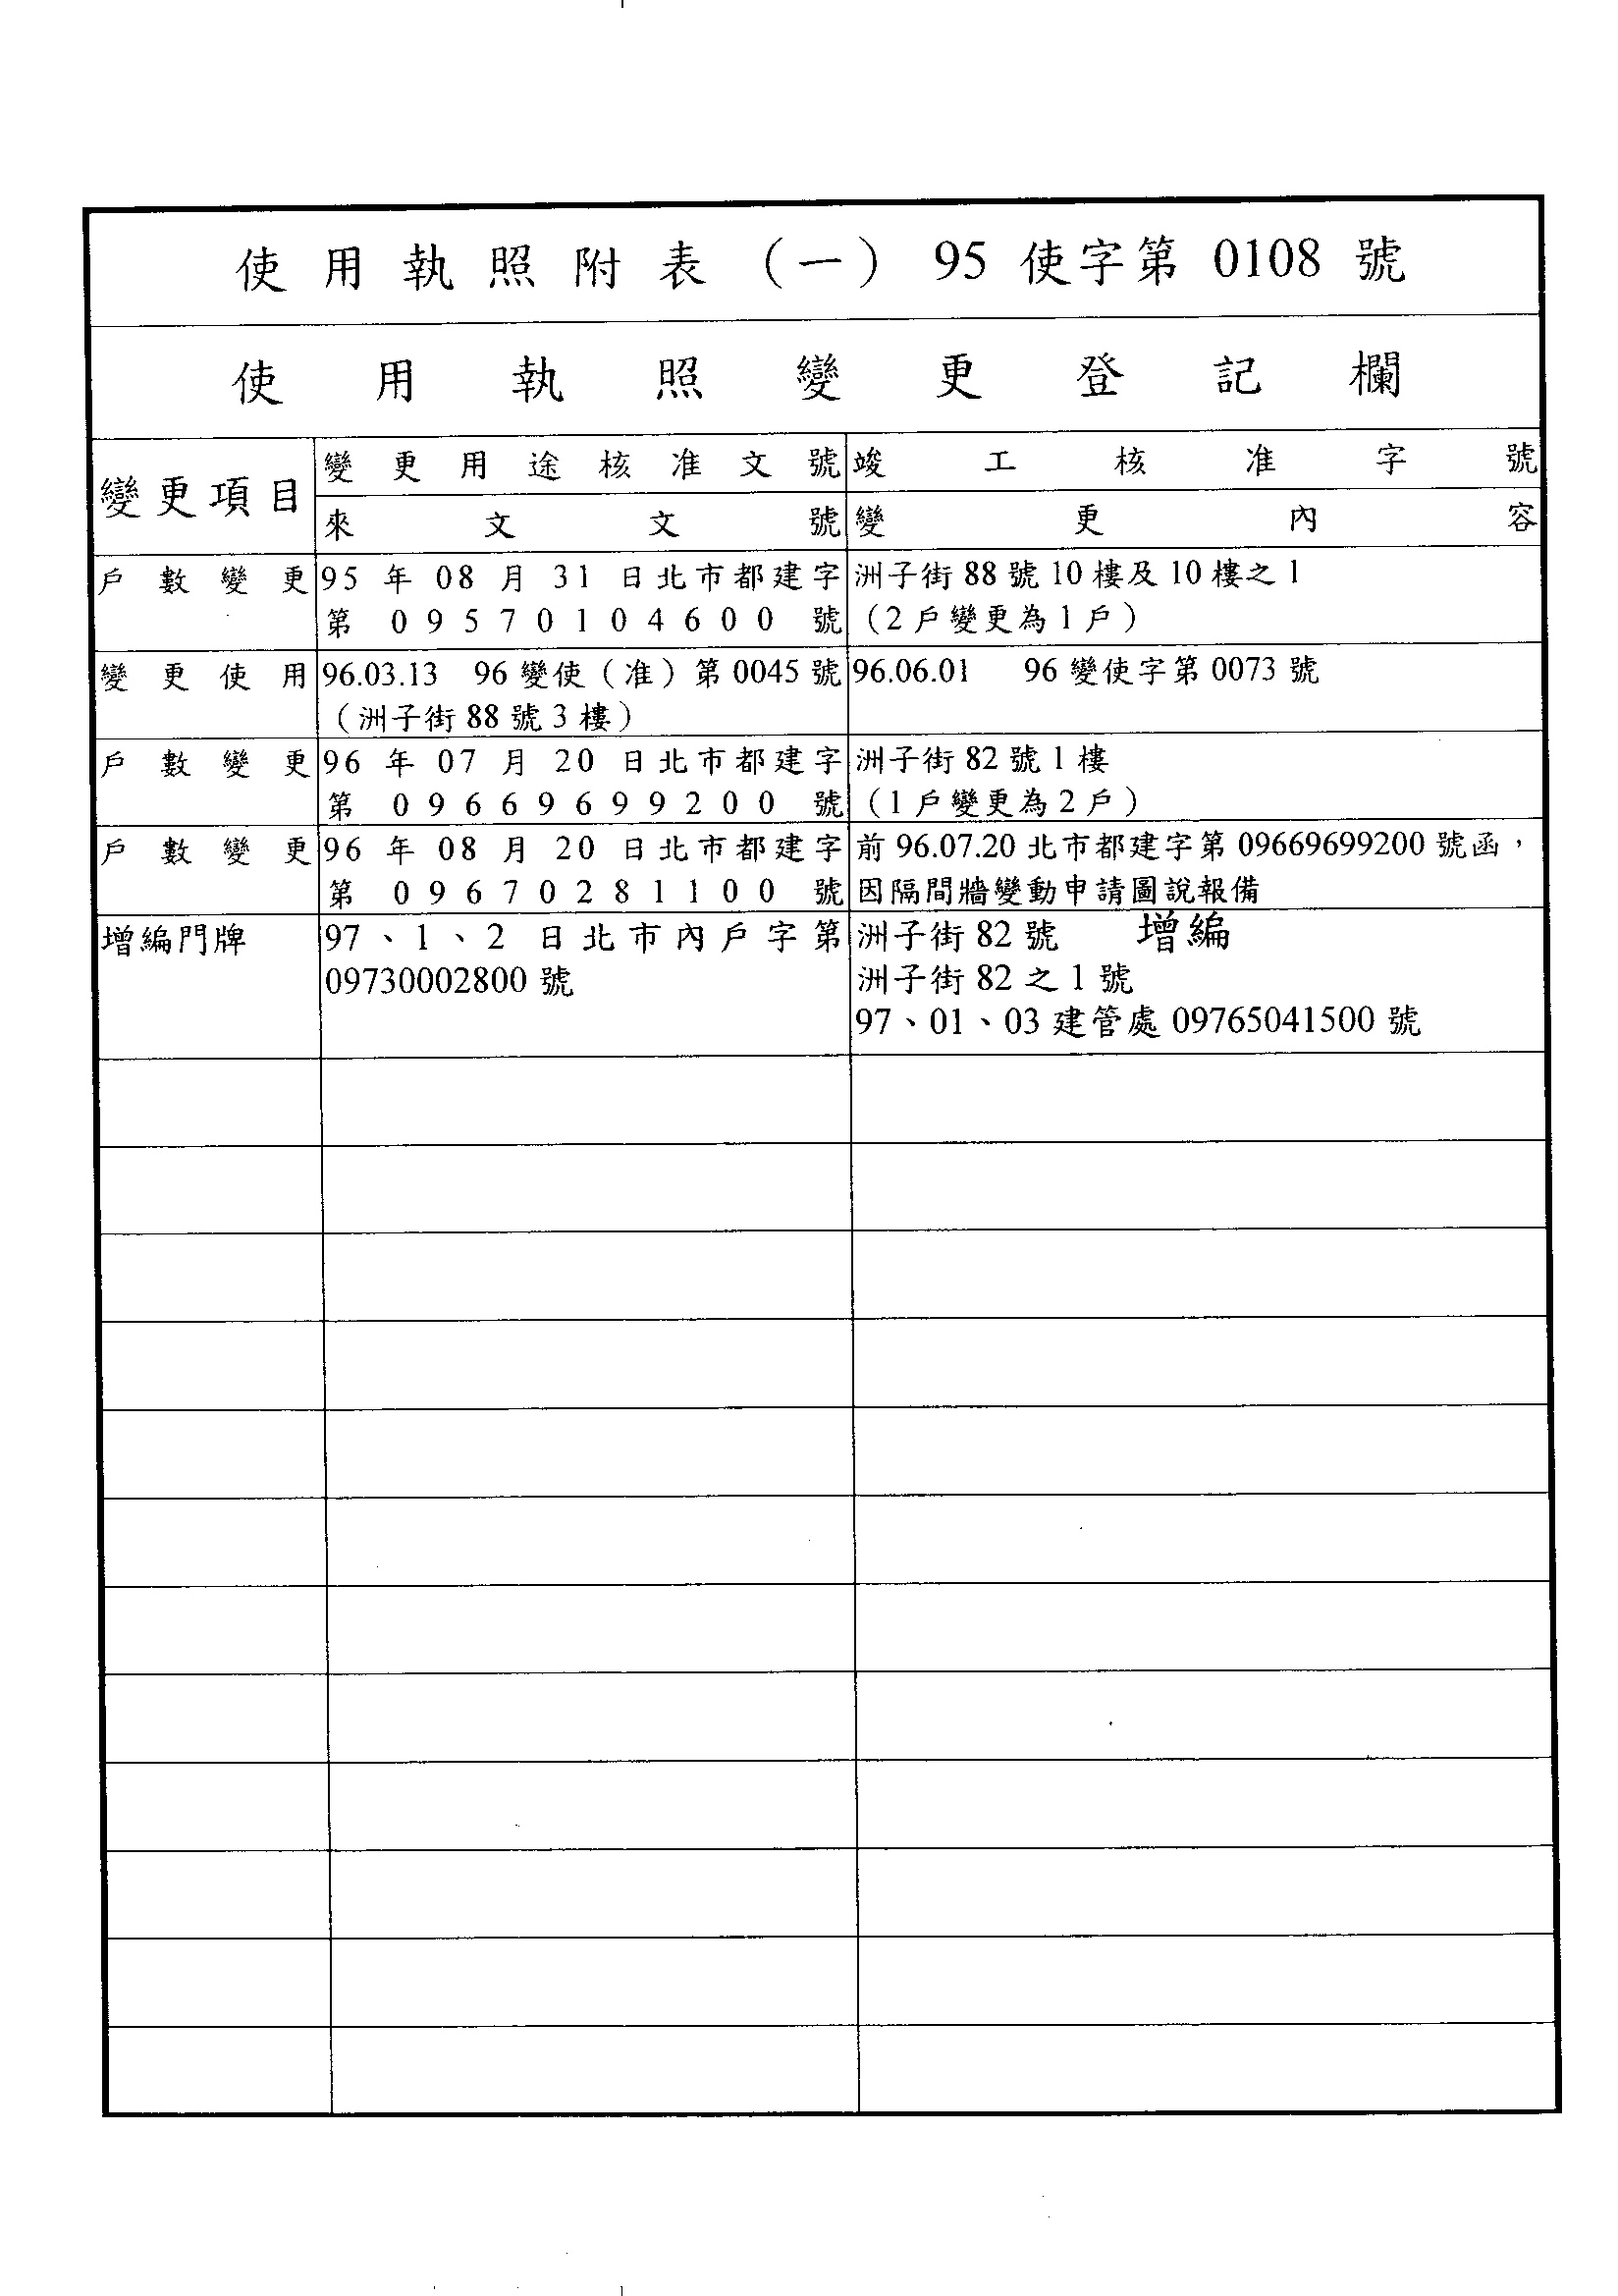 使用執照附表（一）95使字第0108號
使用執照變更登記欄
變更項目
變更用途核准文號
竣工核准字號
來文文號
變更內容
戶數變更
95年08月31日北市都建字
第09570104600號
洲子街88號10樓及10樓之1
（2戶變更為1戶）
變更使用
96.03.13 96變使（准）第0045號
（洲子街88號3樓）
96.06.01 96變使字第0073號
戶數變更
96年07月20日北市都建字
第09669699200號
洲子街82號1樓
（1戶變更為2戶）
戶數變更
96年08月20日北市都建字
第09670281100號
前96.07.20北市都建字第09669699200號函，
因隔間牆變動申請圖說報備
增編門牌
97、1、2日北市內戶字第
09730002800號
洲子街82號 增編
洲子街82之1號
97、01、03建管處09765041500號